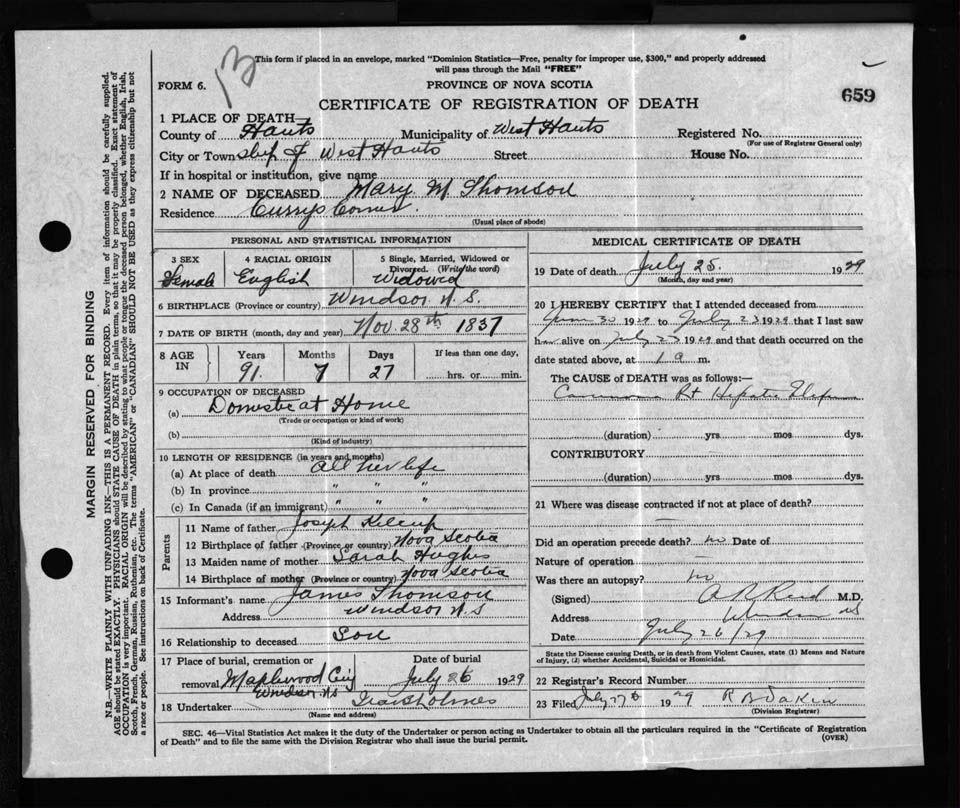 13
This form if placed in an envelope, marked "Dominion Statistics—Free, penalty for improper use, $300," and properly addressed
will pass through the Mail "FREE"
FORM 6.
PROVINCE OF NOVA SCOTIA
CERTIFICATE OF REGISTRATION OF DEATH
659
1 PLACE OF DEATH
County of Hants Municipality of West Hants Registered No.
(For use of Registrar General only)
City or Town ship of West Hants Street House No.
If in hospital or institution, give name
2 NAME OF DECEASED Mary M Thomson
Residence Currys Corner.
(Usual place of abode)
PERSONAL AND STATISTICAL INFORMATION
3 SEX 4 RACIAL ORIGIN 5 Single, Married, Widowed or
Divorced. (Write the word)
Female English Widowed
6 BIRTHPLACE (Province or country) Windsor N.S.
7 DATE OF BIRTH (month, day and year) Nov. 28th 1837
8 AGE IN Years Months Days If less than one day,
91. 7 27 hrs. or min.
9 OCCUPATION OF DECEASED
(a) Domestic at Home
(Trade or occupation or kind of work)
(b)
(Kind of industry)
10 LENGTH OF RESIDENCE (in years and months)
(a) At place of death all her life
(b) In province " " "
(c) In Canada (if an immigrant) " " "
Parents
11 Name of father Joseph
12 Birthplace of father (Province or country) Nova Scotia
13 Maiden name of mother Sarah Hughes
14 Birthplace of mother (Province or country) Nova Scotia
15 Informant's name James Thomson
Address Windsor N.S
16 Relationship to deceased Son
17 Place of burial, cremation or Date of burial
removal Maplewood July 26 1929
Windsor N.S
18 Undertaker
(Name and address)
MEDICAL CERTIFICATE OF DEATH
19 Date of death July 25. 1929
(Month, day and year)
20 I HEREBY CERTIFY that I attended deceased from
June 30 1929 to July 23 1929 that I last saw
her alive on July 23 1929 and that death occurred on the
date stated above, at 1 a m.
The CAUSE of DEATH was as follows:—
Rt Hepatic
(duration) yrs mos dys.
CONTRIBUTORY
(duration) yrs mos dys.
21 Where was disease contracted if not at place of death?
Did an operation precede death? no Date of
Nature of operation
Was there an autopsy? no
(Signed) M.D.
Address Windsor NS
Date July 26/29
State the Disease causing Death, or in death from Violent Causes, state (1) Means and Nature
of Injury, (2) whether Accidental, Suicidal or Homicidal.
22 Registrar's Record Number
23 Filed July 27th 1929
(Division Registrar)
SEC. 46—Vital Statistics Act makes it the duty of the Undertaker or person acting as Undertaker to obtain all the particulars required in the "Certificate of Registration
of Death" and to file the same with the Division Registrar who shall issue the burial permit.
(OVER)
MARGIN RESERVED FOR BINDING
N.B.—WRITE PLAINLY WITH UNFADING INK—THIS IS A PERMANENT RECORD. Every item of information should be carefully supplied.
AGE should be stated EXACTLY. PHYSICIANS should STATE CAUSE OF DEATH in plain terms, so that it may be properly classified. Exact statement of
OCCUPATION is very important. RACIAL ORIGIN will be described by stating to what people or tongue the deceased person belonged, whether English, Irish,
Scotch, French, German, Russian, Ruthenian, etc. The terms "AMERICAN" or "CANADIAN" SHOULD NOT BE USED as they express citizenship but not
a race or people. See instructions on back of Certificate.